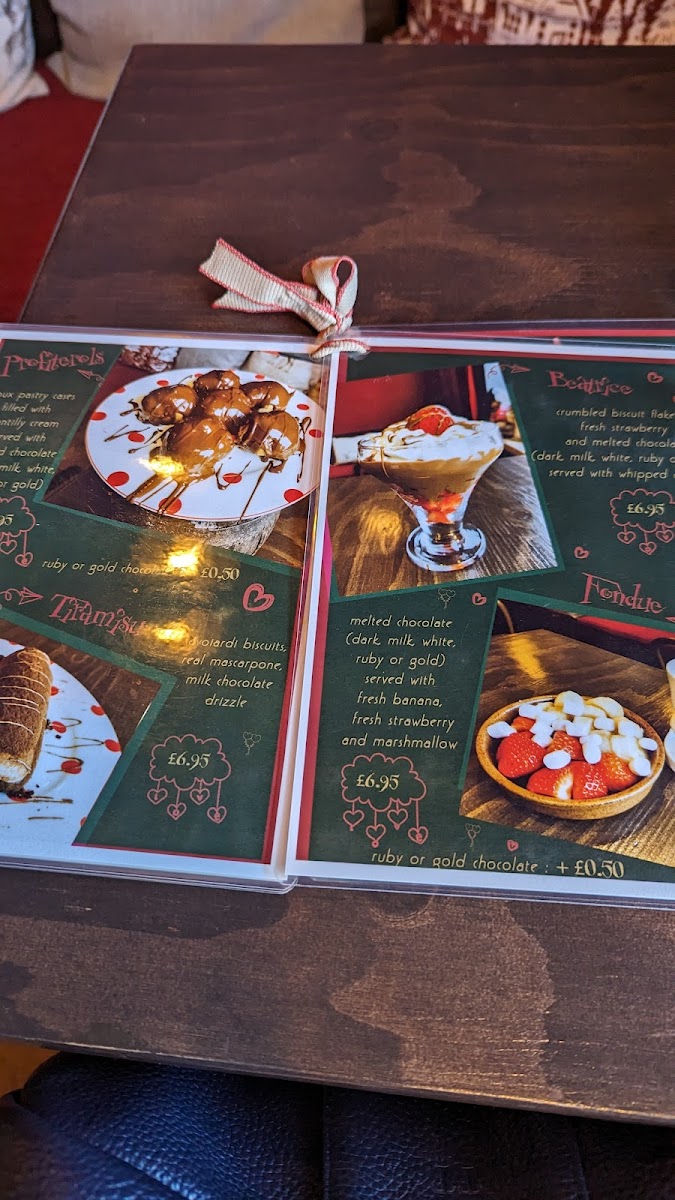 Profiterols
pastry cases
filled with
cream
with
chocolate
milk, white,
or gold)
ruby or gold + £0.50
Tiramisu
biscuits,
real mascarpone,
milk chocolate
drizzle
£6.95
Beatrice
crumbled biscuit
fresh strawberry
and melted
(dark, milk, white, ruby
served with whipped
£6.95
Fondue
melted chocolate
(dark, milk, white,
ruby or gold)
served with
fresh banana,
fresh strawberry
and marshmallow
£6.95
ruby or gold chocolate : + £0.50